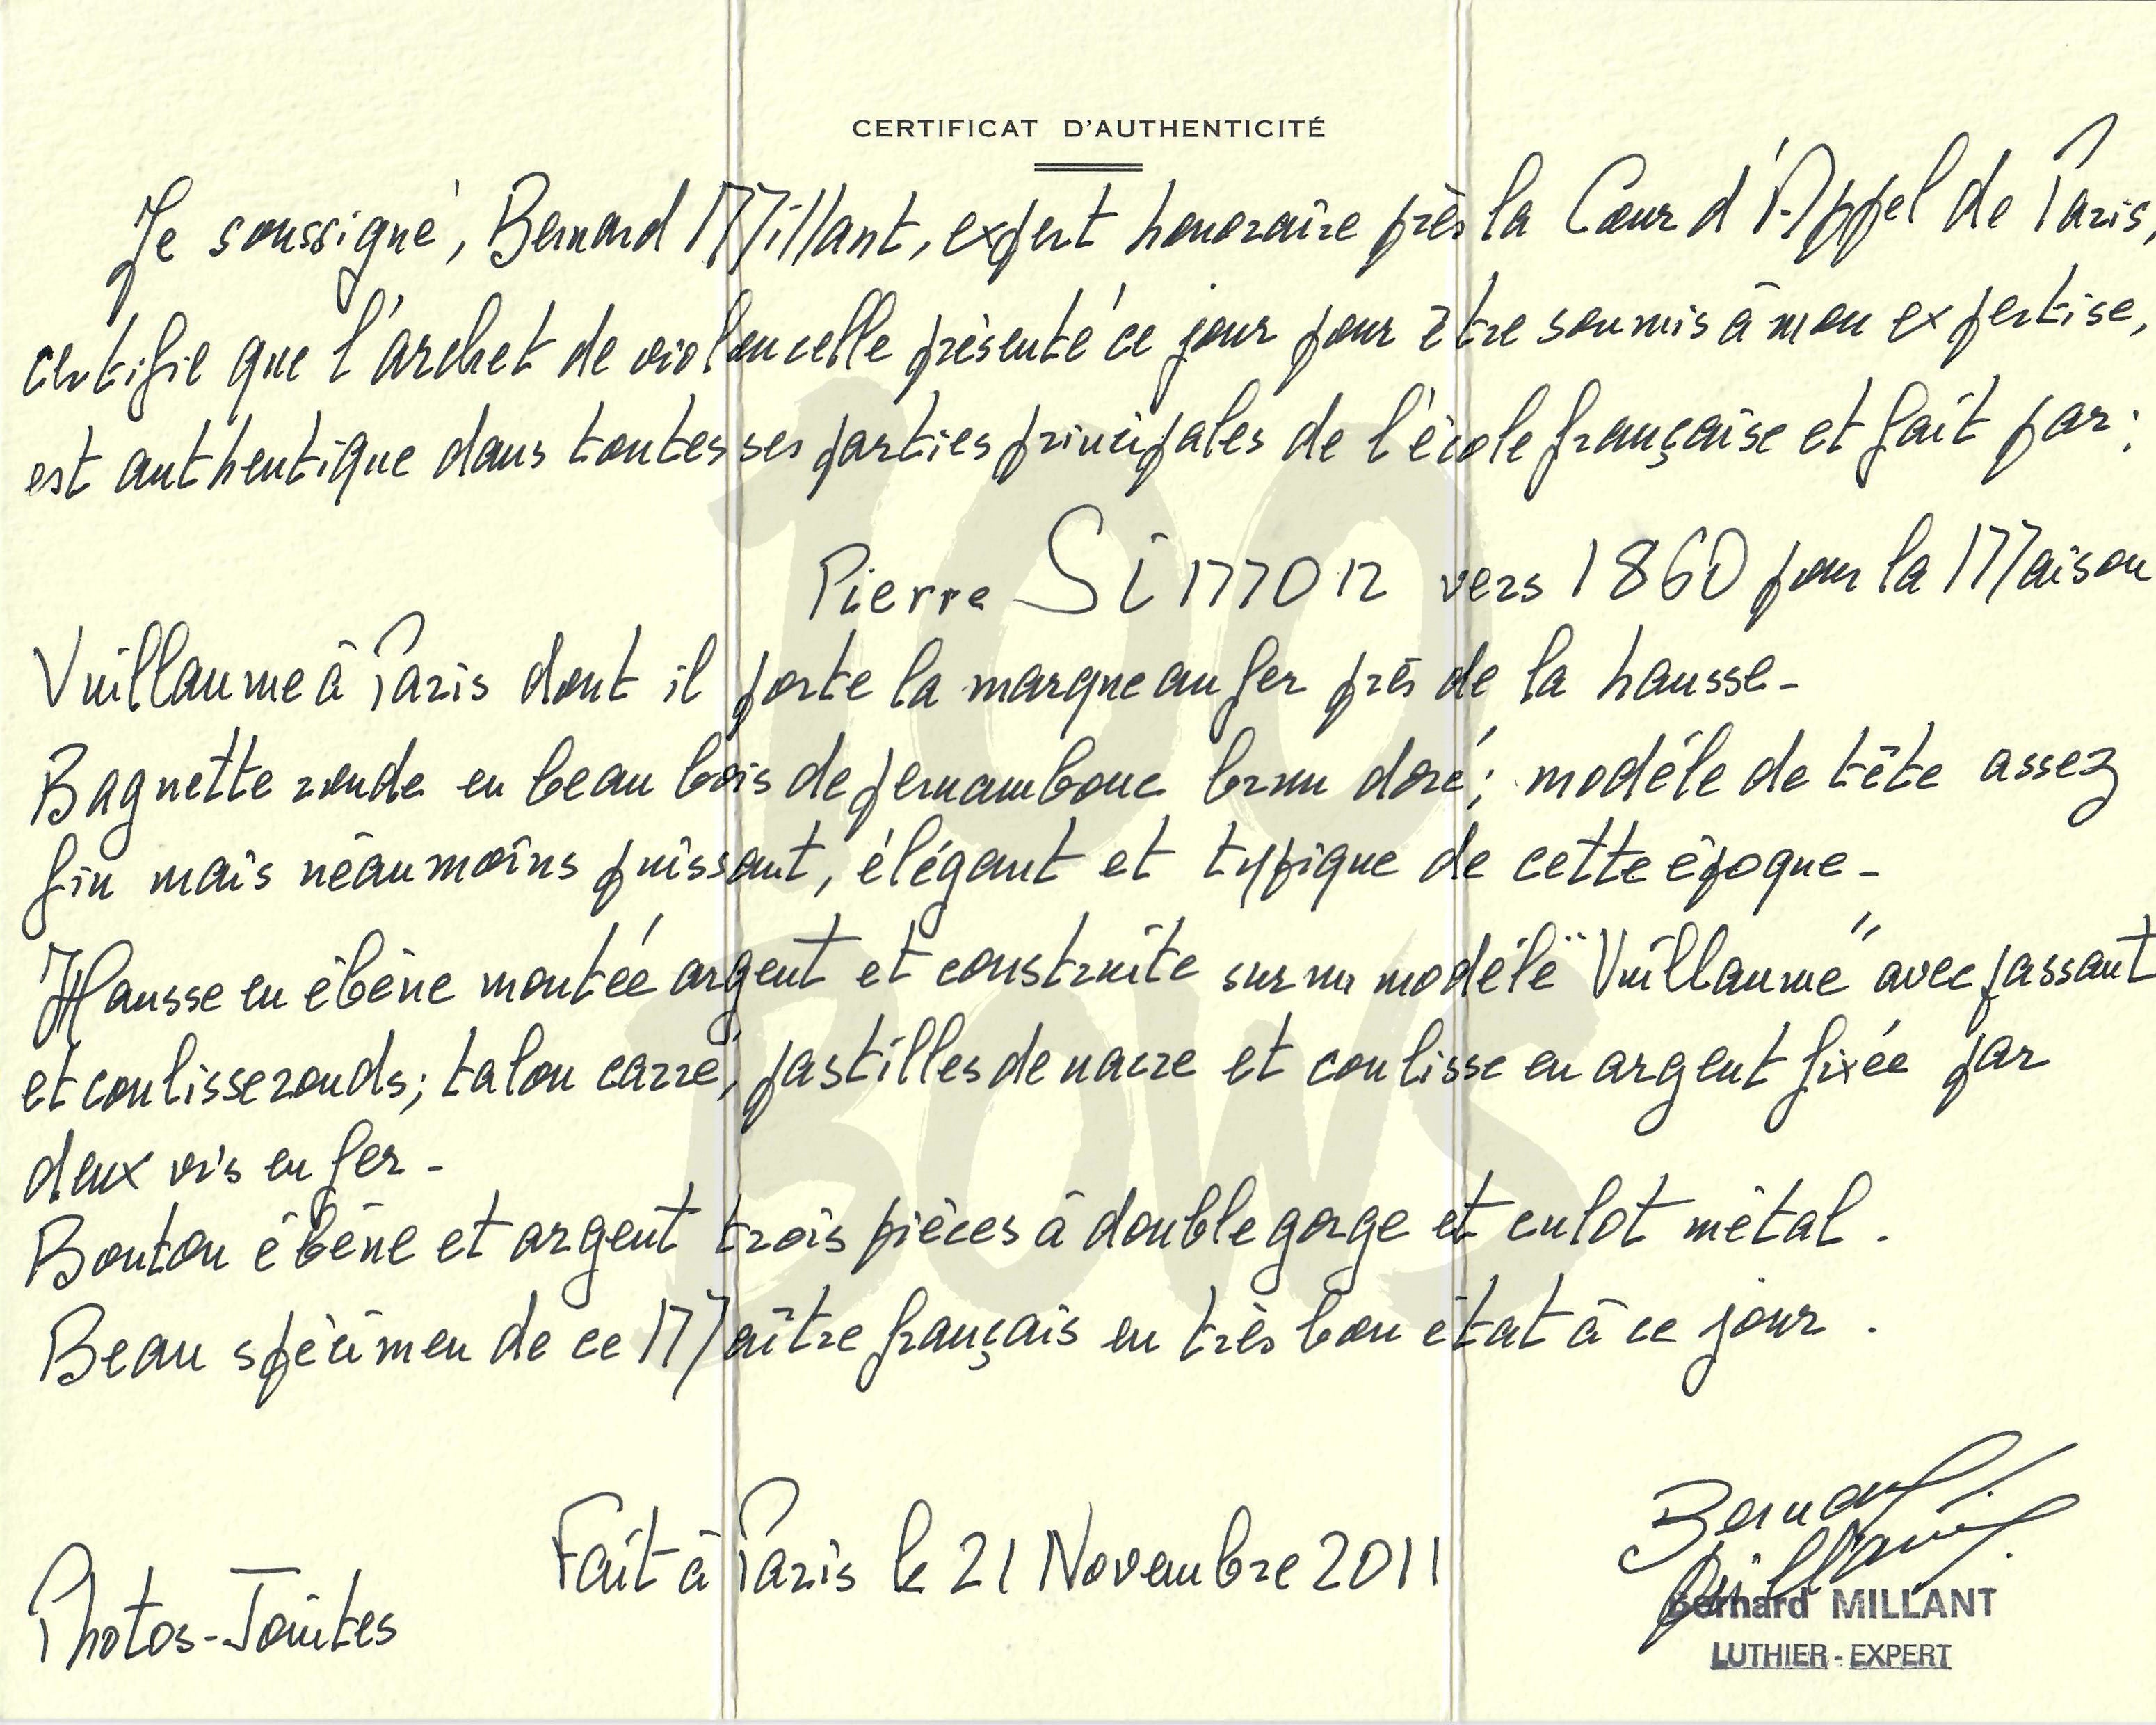 CERTIFICAT D'AUTHENTICITÉ
Je soussigné, Bernard Millant, expert honoraire près la Cour d'Appel de Paris,
certifie que l'archet de violoncelle présenté ce jour pour être soumis à mon expertise,
est authentique dans toutes ses parties principales de l'école française et fait par:
Pierre SIMON vers 1860 pour la Maison
Vuillaume à Paris dont il porte la marque au fer près de la hausse-
Baguette ronde en beau bois de pernambouc brun doré; modéle de tête assez
fin mais néaumoins puissant, élégant et typique de cette époque-
Hausse en ébène montée argent et construite sur un modéle "Vuillaume" avec passant
et coulisse ronds; talon carré, pastilles de nacre et coulisse en argent fixée par
deux vis en fer-
Bouton ébène et argent trois pièces à double gorge et culot métal.
Beau spécimen de ce Maître français en très bon état à ce jour.
Fait à Paris le 21 Novembre 2011
Photos-Jointes
Bernard
Millant
Bernard MILLANT
LUTHIER-EXPERT
100
BOWS